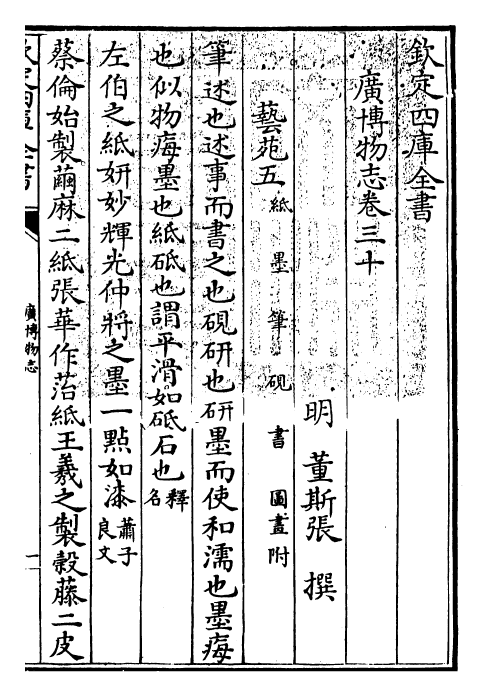 欽定四庫全書
廣博物志卷三十
明 董斯張 撰
藝苑五 紙 墨 筆 硯 書 圖畫附
筆述也述事而書之也硯研也研墨而使和濡也墨痗
也似物痗墨也紙砥也謂平滑如砥石也 釋名
左伯之紙妍妙輝光仲將之墨一點如漆 蕭子良文
蔡倫始製繭麻二紙張華作苔紙王羲之製榖藤二皮
欽定四庫全書
廣博物志
一